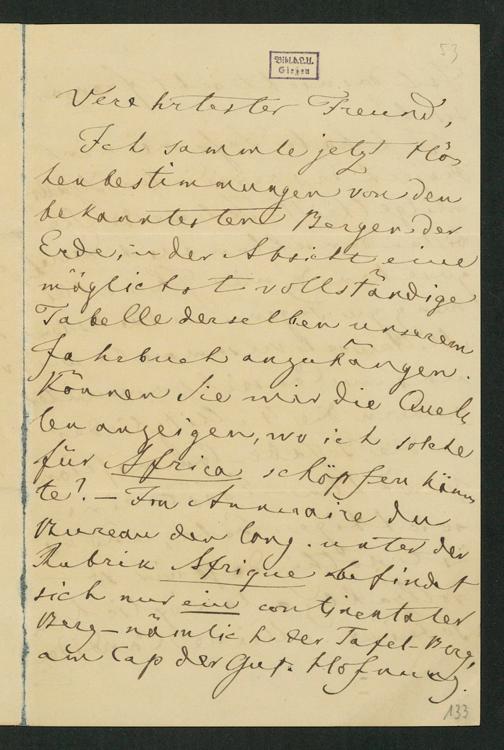 53
Bibl. d. L. U.
Giessen
Verehrtester Freund,
Ich sammle jetzt Hö-
henbestimmungen von den
bekanntesten Bergen der
Erde, in der Absicht eine
möglichst vollständige
Tabelle derselben unserem
Jahrbuch anzuhängen.
Können Sie mir die Quel-
len anzeigen, wo ich solche
für Africa schöpfen könn-
te? – Im Annuaire du
Bureau des long. unter der
Rubrik Afrique befindet
sich nur ein continentaler
Berg – nämlich der Tafel-Berg,
am Cap der Gut. Hofnung.
133